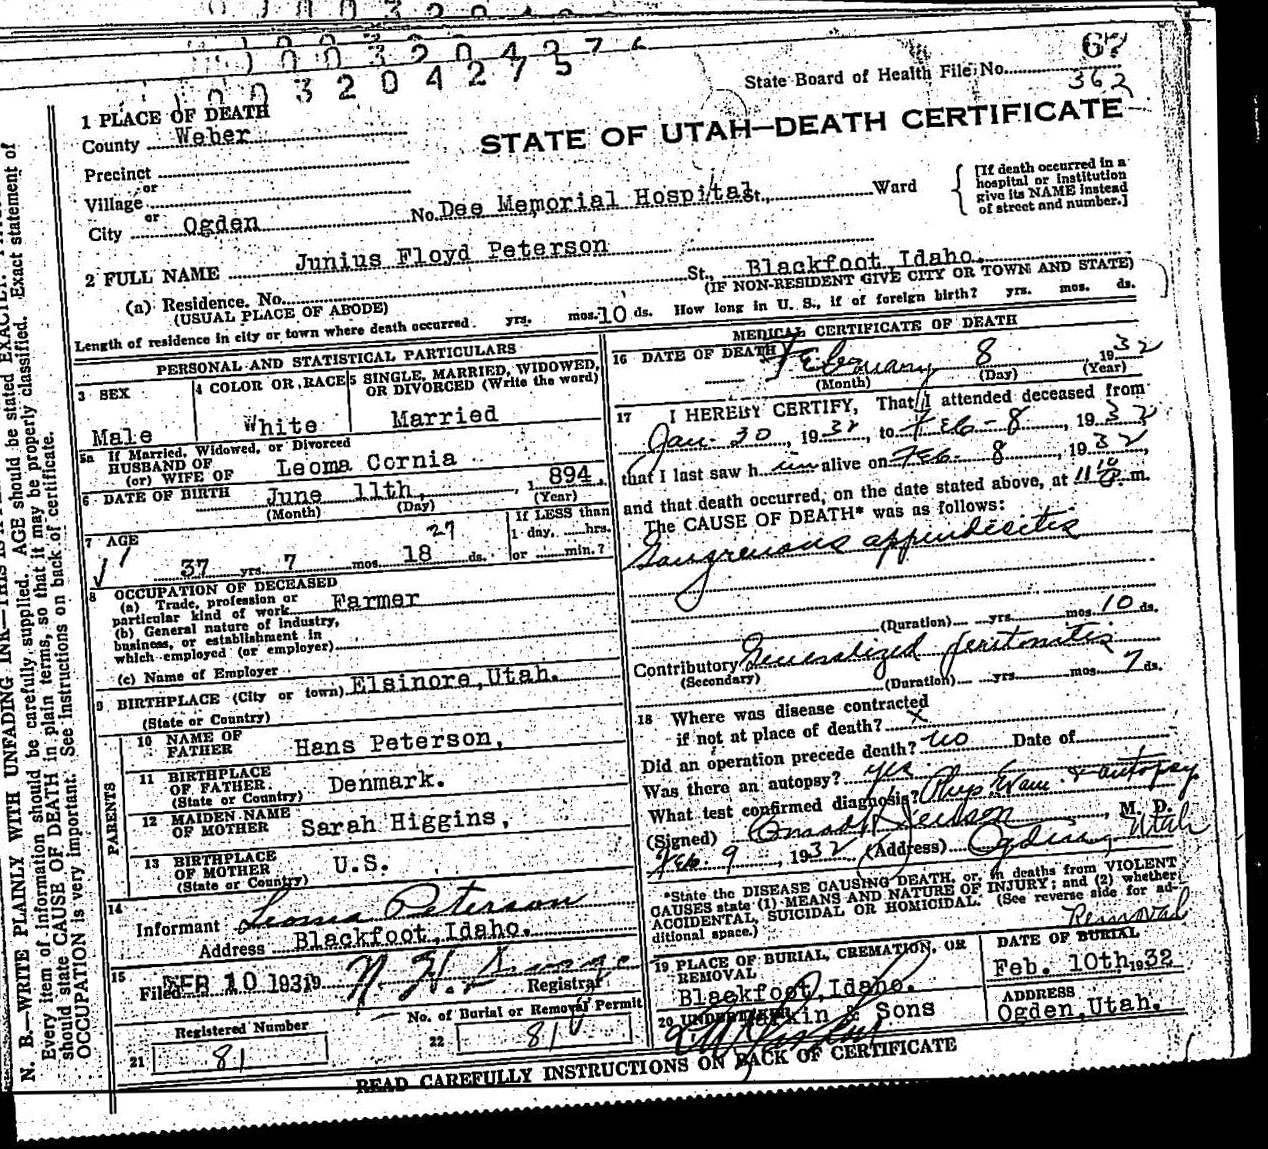 1003204276
1003204275
67
State Board of Health File No.
362
1 PLACE OF DEATH
County Weber
STATE OF UTAH—DEATH CERTIFICATE
Precinct
or
Village
or
City Ogden No. Dee Memorial Hospital St., Ward
[If death occurred in a
hospital or institution
give its NAME instead
of street and number.]
2 FULL NAME Junius Floyd Peterson
(a) Residence. No. St., Blackfoot Idaho.
(USUAL PLACE OF ABODE) (IF NON-RESIDENT GIVE CITY OR TOWN AND STATE)
Length of residence in city or town where death occurred. yrs. mos. 10 ds. How long in U. S., if of foreign birth? yrs. mos. ds.
PERSONAL AND STATISTICAL PARTICULARS
3 SEX
Male
4 COLOR OR RACE
White
5 SINGLE, MARRIED, WIDOWED,
OR DIVORCED (Write the word)
Married
5a If Married, Widowed, or Divorced
HUSBAND OF
(or) WIFE OF Leoma Cornia
6 DATE OF BIRTH June 11th, 1894.
(Month) (Day) (Year)
7 AGE
27
37 yrs. 7 mos. 18 ds.
If LESS than
1 day, hrs.
or min.?
8 OCCUPATION OF DECEASED
(a) Trade, profession or
particular kind of work Farmer
(b) General nature of industry,
business, or establishment in
which employed (or employer)
(c) Name of Employer
9 BIRTHPLACE (City or town) Elsinore, Utah.
(State or Country)
PARENTS
10 NAME OF
FATHER Hans Peterson,
11 BIRTHPLACE
OF FATHER.
(State or Country) Denmark.
12 MAIDEN NAME
OF MOTHER Sarah Higgins,
13 BIRTHPLACE
OF MOTHER
(State or Country) U.S.
14
Informant Leoma Peterson
Address Blackfoot, Idaho.
15
Filed FEB 10 1931 19 Registrar
Registered Number
21 81
No. of Burial or Removal Permit
22 81
MEDICAL CERTIFICATE OF DEATH
16 DATE OF DEATH February 8, 1932
(Month) (Day) (Year)
17 I HEREBY CERTIFY, That I attended deceased from
Jan. 30, 1932, to Feb - 8, 1932
that I last saw him alive on Feb. 8, 1932,
and that death occurred, on the date stated above, at 11 10 P. m.
The CAUSE OF DEATH* was as follows:
Gangrenous appendicitis
(Duration) yrs. mos. 10 ds.
Contributory Generalized peritonitis
(Secondary) (Duration) yrs. mos. 7 ds.
18 Where was disease contracted
if not at place of death? X
Did an operation precede death? no Date of
Was there an autopsy? yes
What test confirmed diagnosis? Phys. Exam. & autopsy
(Signed) Conrad Jenson, M. D.
Feb. 9, 1932 (Address) Ogden, Utah
*State the DISEASE CAUSING DEATH, or, in deaths from VIOLENT
CAUSES state (1) MEANS AND NATURE OF INJURY; and (2) whether
ACCIDENTAL, SUICIDAL OR HOMICIDAL. (See reverse side for ad-
ditional space.)
Removal
19 PLACE OF BURIAL, CREMATION, OR
REMOVAL
Blackfoot, Idaho.
DATE OF BURIAL
Feb. 10th, 1932
20 UNDERTAKER Larkin & Sons
ADDRESS
Ogden, Utah.
READ CAREFULLY INSTRUCTIONS ON BACK OF CERTIFICATE
N. B.—WRITE PLAINLY WITH UNFADING INK—THIS IS
Every item of information should be carefully supplied. AGE should be stated EXACTLY.
should state CAUSE OF DEATH in plain terms, so that it may be properly classified. Exact statement of
OCCUPATION is very important. See instructions on back of certificate.